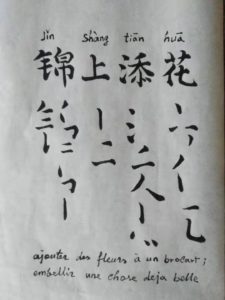 Jǐn shàng tiān huā
锦上添花
ajouter des fleurs à un brocart ;
embellir une chose deja belle